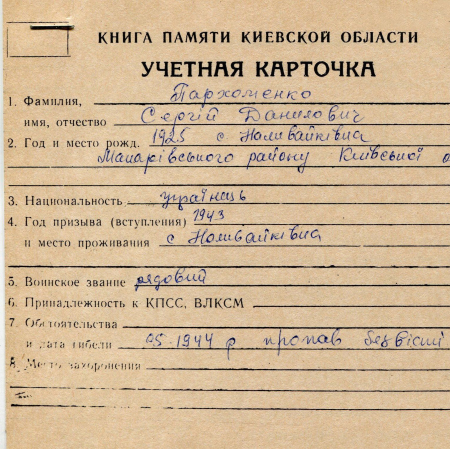 КНИГА ПАМЯТИ КИЕВСКОЙ ОБЛАСТИ
УЧЕТНАЯ КАРТОЧКА
1. Фамилия, Пархоменко
имя, отчество Сергій Данилович
2. Год и место рожд. 1925 с Наливайківка
Макарівського району Київської о
3. Национальность українець
4. Год призыва (вступления) 1943
и место проживания с Наливайківка
5. Воинское звание рядовий
6. Принадлежность к КПСС, ВЛКСМ
7. Обстоятельства
и дата гибели 05-1944 р пропав безвісти
8. Место захоронения